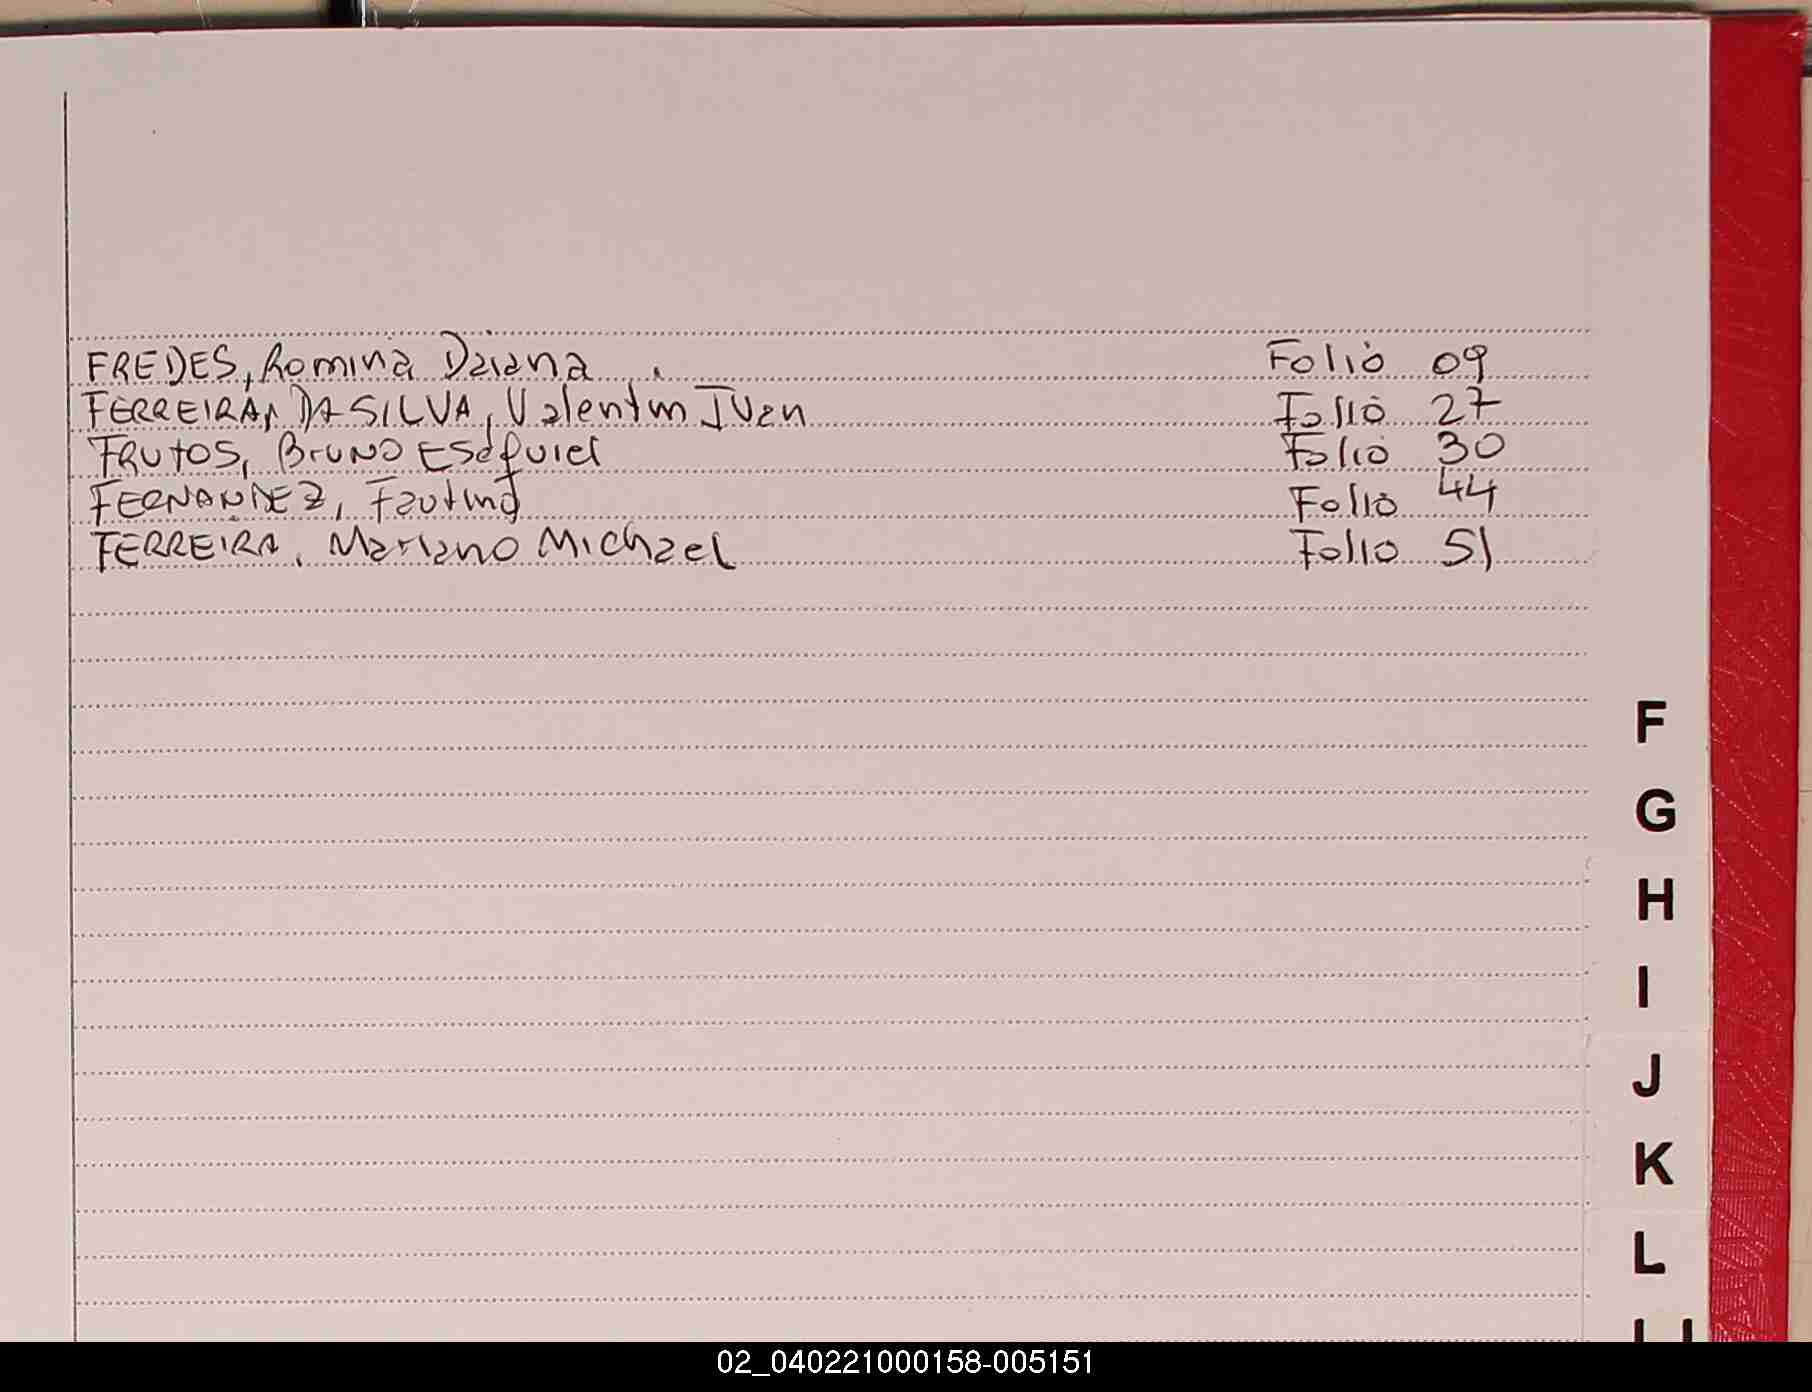 FREDES, Romina Daiana Folio 09
FERREIRA, DA SILVA, Valentin Ivan Folio 27
FRUTOS, Bruno Esequiel Folio 30
FERNANDEZ, Faustino Folio 44
FERREIRA, Mariano Michael Folio 51
F
G
H
I
J
K
L
02_040221000158-005151